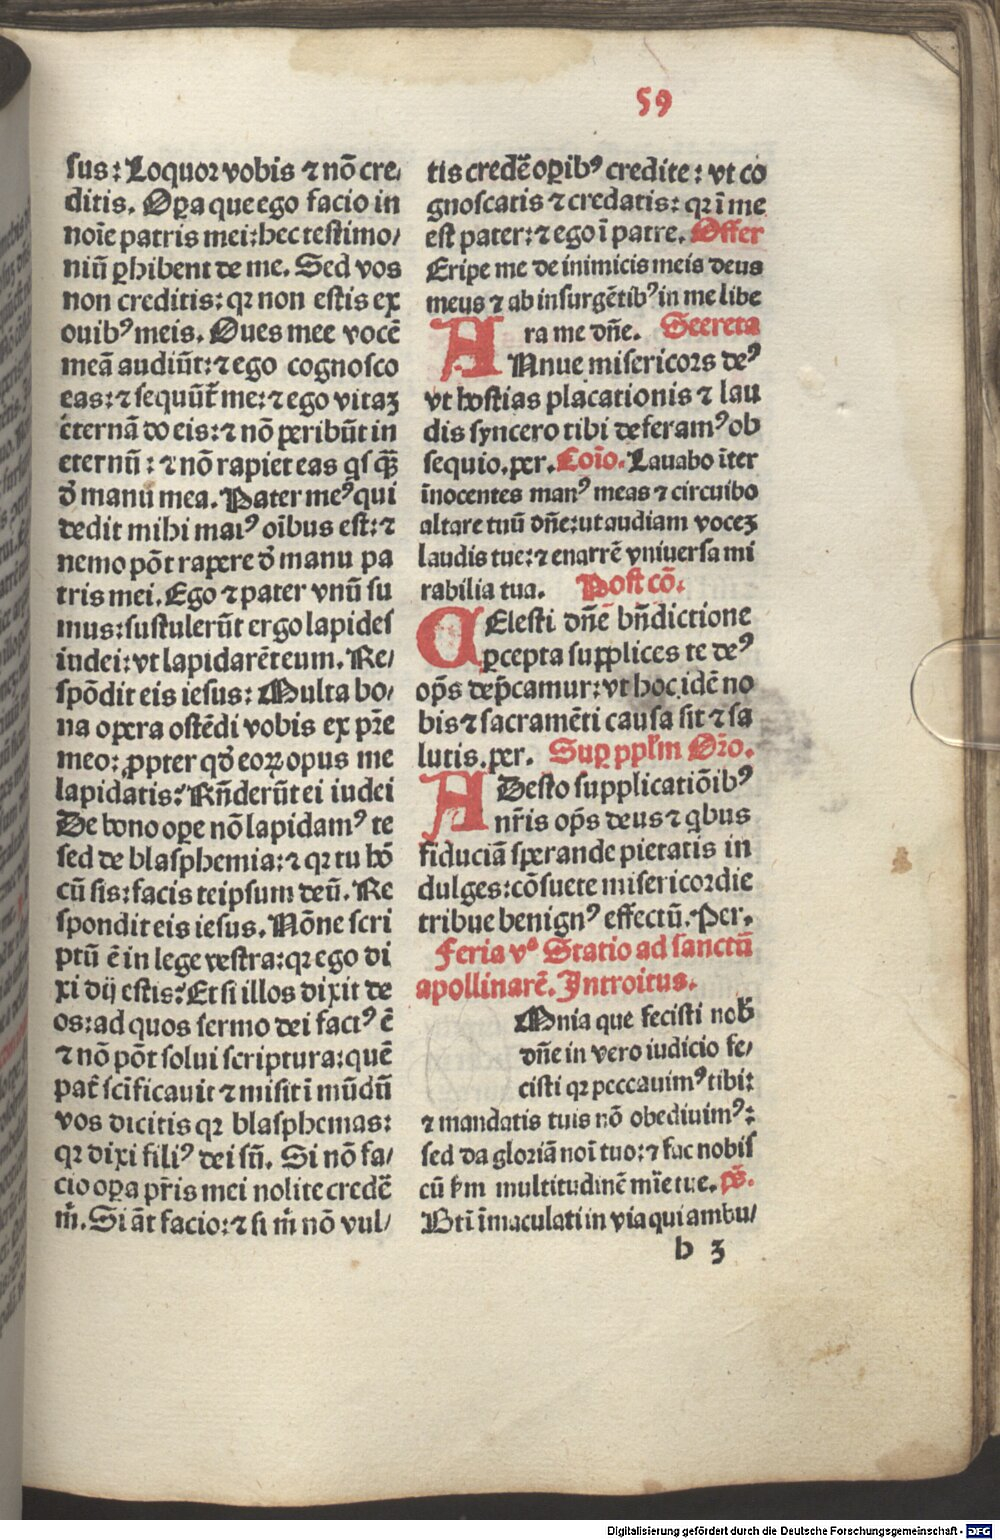 59
sus: Loquor vobis ⁊ nõ cre/
ditis. Oꝑa que ego facio in
noĩe patris mei: hec testimo/
niũ ꝑhibent de me. Sed vos
non creditis: qꝛ non estis ex
ouibꝰ meis. Oues mee vocẽ
meã audiũt: ⁊ ego cognosco
eas: ⁊ sequũt̃ me: ⁊ ego vitaꝫ
eternã do eis: ⁊ nõ peribũt in
eternũ: ⁊ nõ rapiet eas qͥsq̃ꝫ
d̃ manu mea. Pater meꝰ qui
dedit mihi maiꝰ oĩbus est: ⁊
nemo põt rapere d̃ manu pa
tris mei. Ego ⁊ pater vnũ su
mus: sustulerũt ergo lapides
iudei: vt lapidarẽt eum. Re/
spõdit eis iesus: Multa bo/
na opera ostẽdi vobis ex pr̃e
meo: ꝓpter qď eoꝝ opus me
lapidatis: Rñderũt ei iudei
De bono oꝑe nõ lapidamꝰ te
sed de blasphemia: ⁊ qꝛ tu hõ
cũ sis: facis teipsum deũ. Re
spondit eis iesus. Nõne scri
ptũ ẽ in lege vestra: qꝛ ego di
xi dij estis: Et si illos dixit de
os: ad quos sermo dei factꝰ ẽ
⁊ nõ põt solui scriptura: quẽ
pat̃ sc̃ificauit ⁊ misit ĩ mũdũ
vos dicitis qꝛ blasphemas:
qꝛ dixi filiꝰ dei sũ. Si nõ fa/
cio oꝑa pr̃is mei nolite credẽ
m̃. Si ãt facio: ⁊ si m̃ nõ vul/
tis credẽ oꝑibꝰ credite: vt co
gnoscatis ⁊ credatis: qꝛ ĩ me
est pater: ⁊ ego ĩ patre. Offer
Eripe me de inimicis meis deus
meus ⁊ ab insurgẽtibꝰ in me libe
ra me dñe. Secreta
ANnue misericors deꝰ
vt hostias placationis ⁊ lau
dis syncero tibi deferamꝰ ob
sequio. per. Coĩo. Lauabo ĩter
ĩnocentes manꝰ meas ⁊ circuibo
altare tuũ dñe: ut audiam voceꝫ
laudis tue: ⁊ enarrẽ vniuersa mi
rabilia tua. Post cõ.
CElesti dñẽ bñdictione
ꝑcepta supplices te deꝰ
op̃s dep̃camur: vt hoc idẽ no
bis ⁊ sacramẽti causa sit ⁊ sa
lutis. per. Suꝑ ppl̃m Oŕo.
ADesto supplicatiõibꝰ
nr̃is op̃s deus ⁊ qͥbus
fiduciã sperande pietatis in
dulges: cõsuete misericordie
tribue benignꝰ effectũ. Per.
Feria vª Statio ad sanctũ
apollinarẽ. Introitus.
Omnia que fecisti nob̃
dñe in vero iudicio fe/
cisti qꝛ peccauimꝰ tibi:
⁊ mandatis tuis nõ obediuimꝰ:
sed da gloriã noĩ tuo: ⁊ fac nobis
cũ km̃ multitudinẽ mĩe tue. p̃s.
Bt̃i ĩmaculati in via qui ambu/
b 3
Digitalisierung gefördert durch die Deutsche Forschungsgemeinschaft - DFG